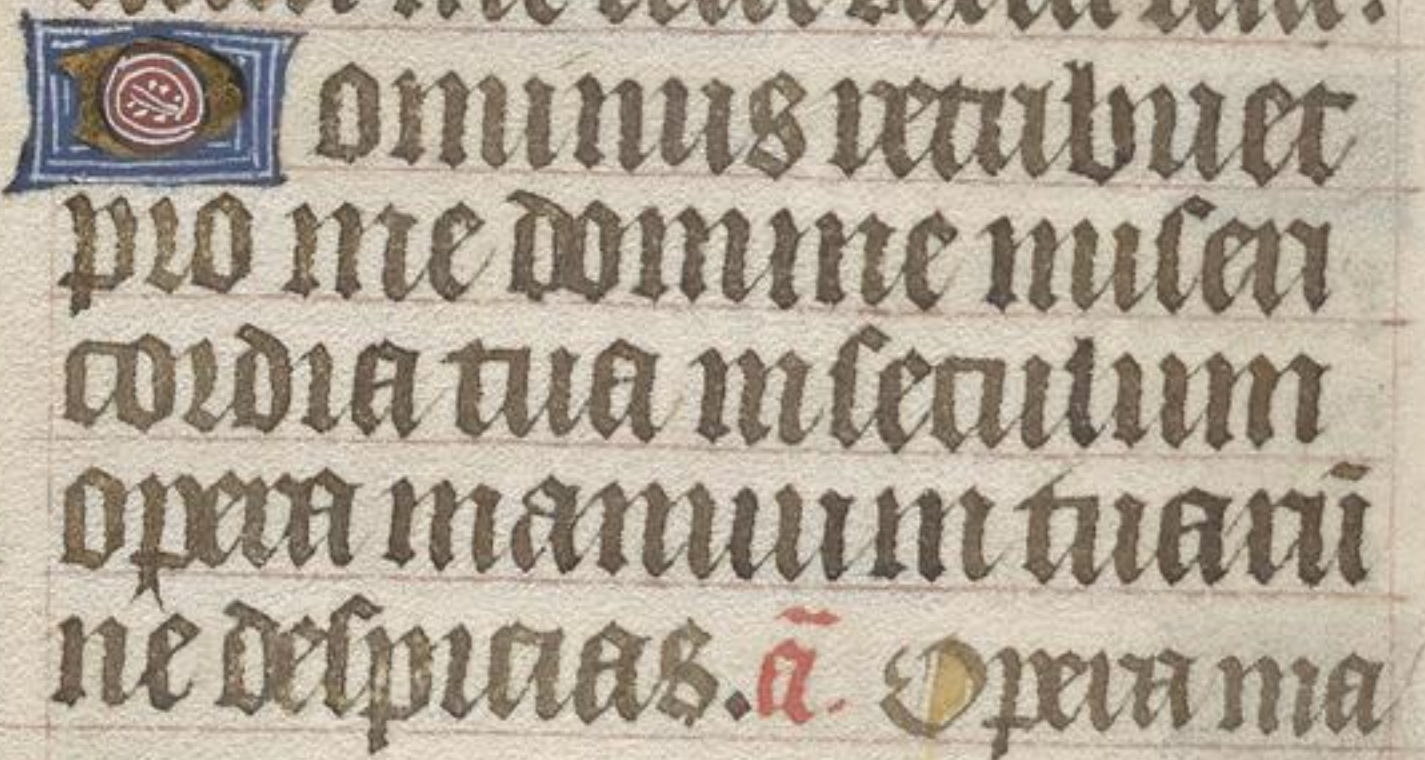 Dominus retribuet
pro me domine miseri
cordia tua in seculum
opera manuum tuarū
ne despicias. ā. Opera ma